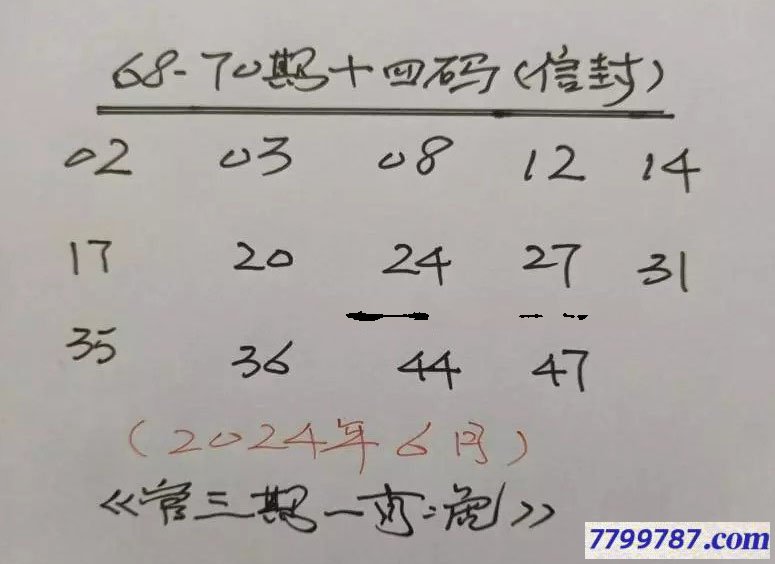 68-70期十四码(信封)
02 03 08 12 14
17 20 24 27 31
35 36 44 47
(2024年6月)
《管三期一肖:兔》
7799787.com